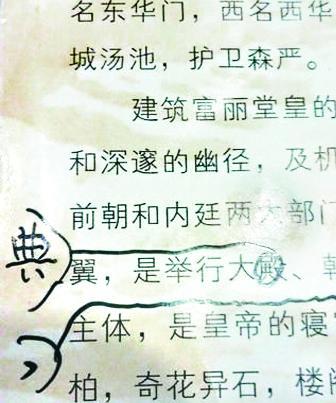 名东华门，西名西华
城汤池，护卫森严。
建筑富丽堂皇的
和深邃的幽径，及机
前朝和内廷两大部门
典
翼，是举行大殿、
主体，是皇帝的寝
柏，奇花异石，楼阁